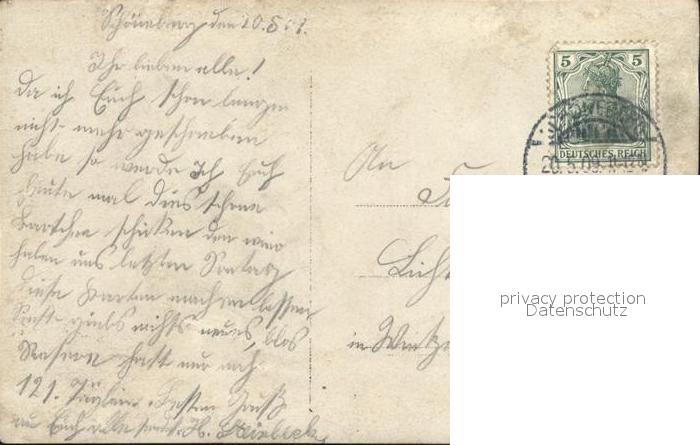 Schöneberg den 20.5.09.
Ihr lieben alle!
Da ich Euch schon langen
nicht mehr geschrieben
habe so werde Ich Euch
Heute mal dies schöne
Kartchen schicken den wir
haben uns letzten Sontag
diese Karten machen lassen
sonst giebs nichts neues, blos
Reserve hatt nur noch
121. Täglein. Besten Gruß
an Euch alle
5 5
DEUTSCHES REICH
20.5.09.
An
Licht
in
privacy protection
Datenschutz